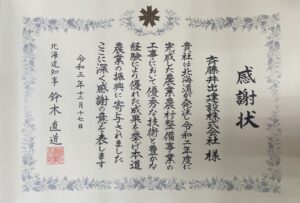 感謝状
斉藤井出建設株式会社 様
貴社は北海道が発注し令和二年度に
完成した農業農村整備事業の
工事において優秀な技術と豊かな
経験により優れた成果を挙げ本道
農業の振興に寄与されました
ここに深く感謝の意を表します
令和三年十二月十七日
北海道知事 鈴木直道